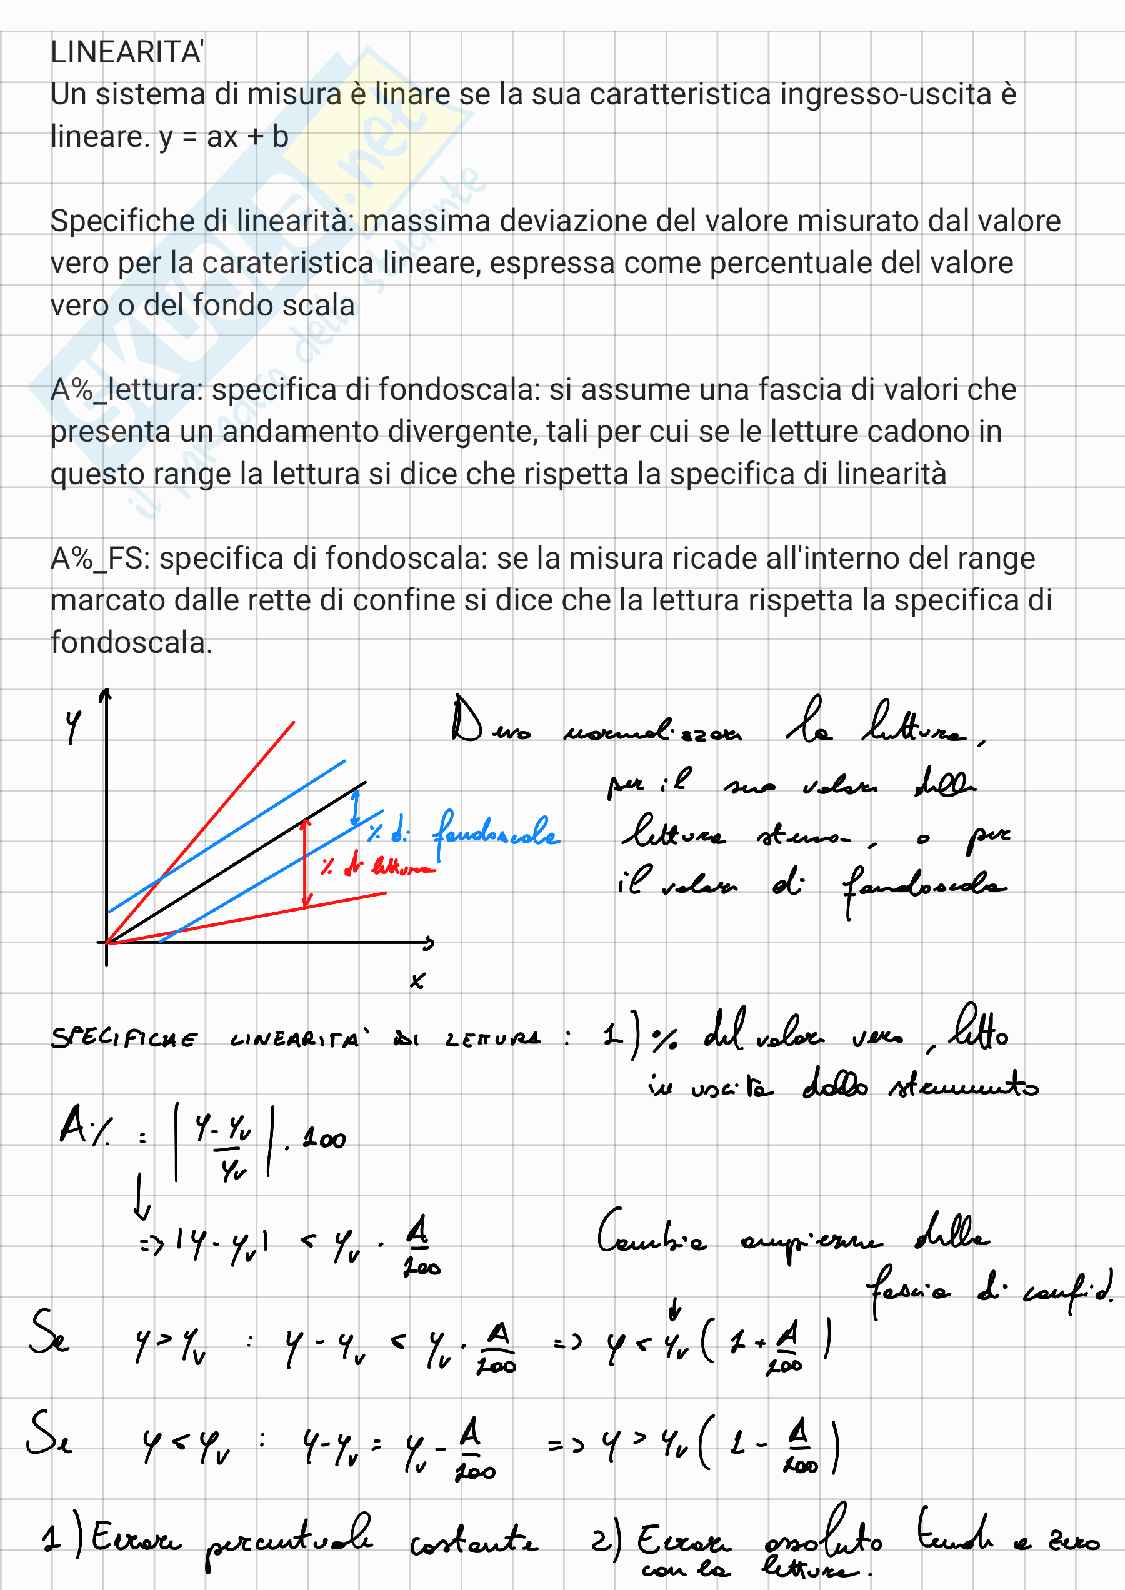 LINEARITA'
Un sistema di misura è linare se la sua caratteristica ingresso-uscita è
lineare. y = ax + b
Specifiche di linearità: massima deviazione del valore misurato dal valore
vero per la carateristica lineare, espressa come percentuale del valore
vero o del fondo scala
A%_lettura: specifica di fondoscala: si assume una fascia di valori che
presenta un andamento divergente, tali per cui se le letture cadono in
questo range la lettura si dice che rispetta la specifica di linearità
A%_FS: specifica di fondoscala: se la misura ricade all'interno del range
marcato dalle rette di confine si dice che la lettura rispetta la specifica di
fondoscala.
y
Devo normalizzare la lettura,
per il suo valore della
lettura stessa, o per
il valore di fondoscala
% di fondoscala
% di lettura
x
SPECIFICHE LINEARITA' DI LETTURA : 1) % del valore vero, letto
in uscita dallo strumento
A% = |y - yv / yv| . 100
=> |y - yv| < yv . A/100
Cambia ampiezza della
fascia di confid.
Se y > yv : y - yv < yv . A/100 => y < yv (1 + A/100)
Se y < yv : y - yv = yv - A/100 => y > yv (1 - A/100)
1) Errore percentuale costante 2) Errore assoluto tende a zero
con la lettura.
SKUOLA.net
il paradiso dello studente